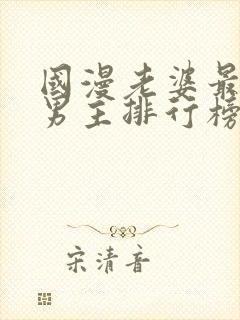 國漫老婆最
男主排行榜
宋清音